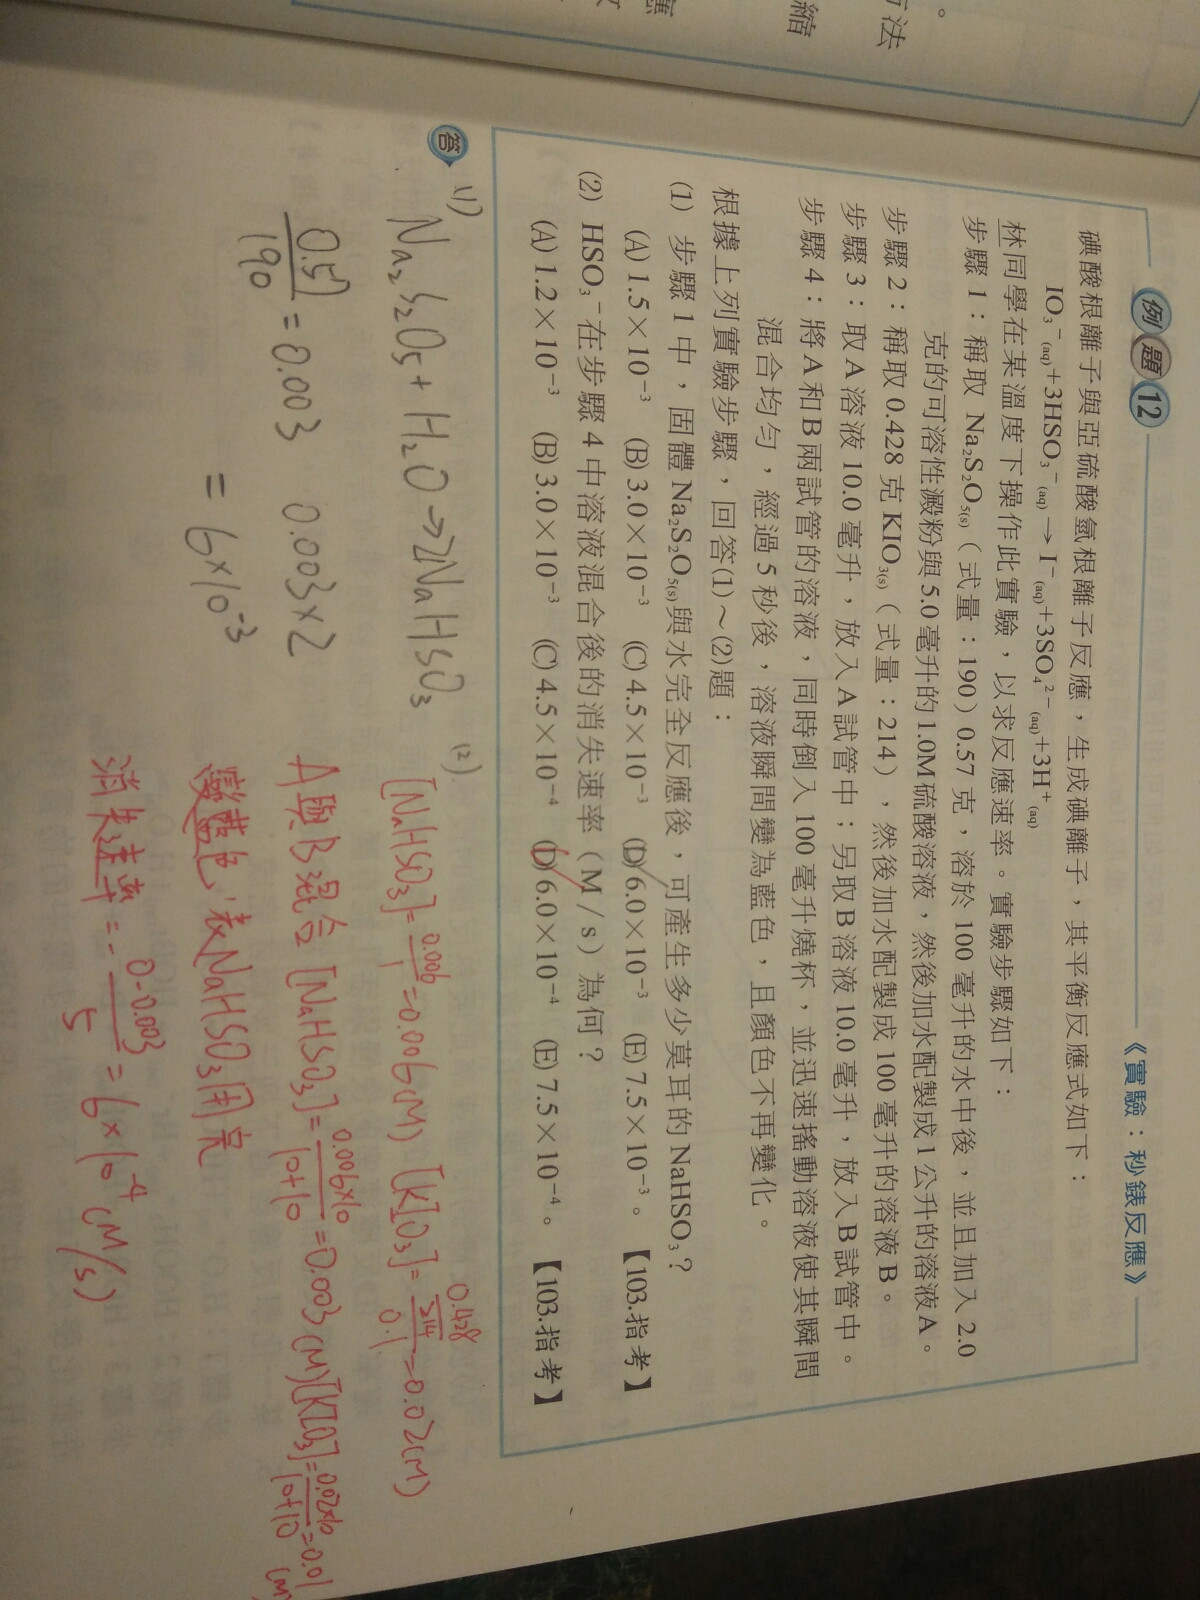 方法
。
縮
應
例題12
《實驗：秒錶反應》
碘酸根離子與亞硫酸氫根離子反應，生成碘離子，其平衡反應式如下：
IO₃⁻(aq)+3HSO₃⁻(aq)→I⁻(aq)+3SO₄²⁻(aq)+3H⁺(aq)
林同學在某溫度下操作此實驗，以求反應速率。實驗步驟如下：
步驟1：稱取 Na₂S₂O₅(s)（式量：190）0.57 克，溶於 100 毫升的水中後，並且加入 2.0
克的可溶性澱粉與 5.0 毫升的 1.0M 硫酸溶液，然後加水配製成 1 公升的溶液 A。
步驟2：稱取 0.428 克 KIO₃(s)（式量：214），然後加水配製成 100 毫升的溶液 B。
步驟3：取 A 溶液 10.0 毫升，放入 A 試管中；另取 B 溶液 10.0 毫升，放入 B 試管中。
步驟4：將 A 和 B 兩試管的溶液，同時倒入 100 毫升燒杯，並迅速搖動溶液使其瞬間
混合均勻，經過 5 秒後，溶液瞬間變為藍色，且顏色不再變化。
根據上列實驗步驟，回答(1)～(2)題：
(1) 步驟 1 中，固體 Na₂S₂O₅(s)與水完全反應後，可產生多少莫耳的 NaHSO₃？
(A) 1.5×10⁻³ (B) 3.0×10⁻³ (C) 4.5×10⁻³ (D) 6.0×10⁻³ (E) 7.5×10⁻³。【103.指考】
(2) HSO₃⁻在步驟 4 中溶液混合後的消失速率（M/s）為何？
(A) 1.2×10⁻³ (B) 3.0×10⁻³ (C) 4.5×10⁻⁴ (D) 6.0×10⁻⁴ (E) 7.5×10⁻⁴。【103.指考】
答
(1)
Na₂S₂O₅+H₂O→2NaHSO₃
0.57/190=0.003 0.003×2
=6×10⁻³
(2).
[NaHSO₃]=0.006/1=0.006(M) [KIO₃]=(0.428/214)/0.1=0.02(M)
A與B混合[NaHSO₃]=0.006×10/10+10=0.003(M)[KIO₃]=0.02×10/10+10=0.01(M)
變藍色,表NaHSO₃用完
消失速率=-0-0.003/5=6×10⁻⁴(M/s)